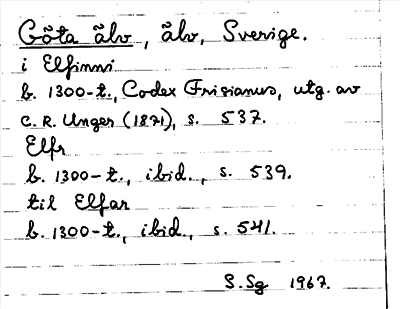 Göta älv, älv, Sverige.
i Elfinni
b. 1300-t., Codex Frisianus, utg. av
C. R. Unger (1871), s. 537.
Elfr
b. 1300-t., ibid., s. 539.
til Elfar
b. 1300-t., ibid., s. 541.
S. Sg 1967.